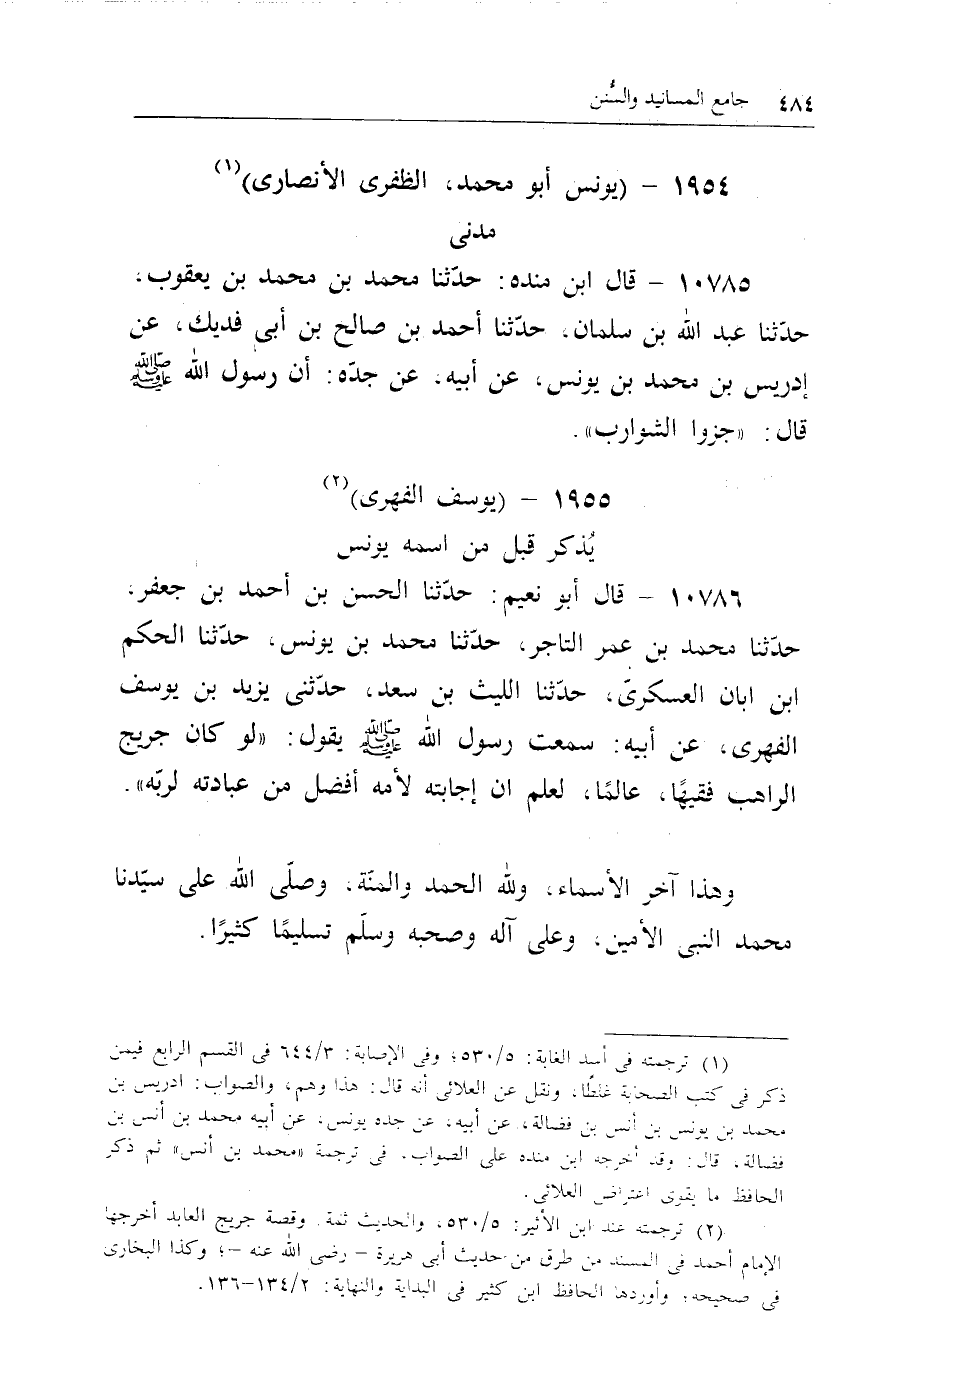 ٤٨٤ جامع المسانيد والسُّنن
١٩٥٤ - (يونس أبو محمد، الظفرى الأنصارى)(١)
مدنى
١٠٧٨٥ - قال ابن منده: حدّثنا محمد بن محمد بن يعقوب،
حدّثنا عبد الله بن سلمان، حدّثنا أحمد بن صالح بن أبى فديك، عن
إدريس بن محمد بن يونس، عن أبيه، عن جدّه: أن رسول الله ﷺ
قال: «جزوا الشوارب».
١٩٥٥ - (يوسف الفهرى)(٢)
يُذكر قبل من اسمه يونس
١٠٧٨٦ - قال أبو نعيم: حدّثنا الحسن بن أحمد بن جعفر،
حدّثنا محمد بن عمر التاجر، حدّثنا محمد بن يونس، حدّثنا الحكم
ابن ابان العسكرىّ، حدّثنا الليث بن سعد، حدّثنى يزيد بن يوسف
الفهرى، عن أبيه: سمعت رسول الله ﷺ يقول: «لو كان جريج
الراهب فقيهًا، عالمًا، لعلم ان إجابته لأمه أفضل من عبادته لربّه».
وهذا آخر الأسماء، ولله الحمد والمنّة، وصلّى الله على سيّدنا
محمد النبى الأمين، وعلى آله وصحبه وسلّم تسليمًا كثيرًا.
(١) ترجمته فى أسد الغابة: ٥/٥٣٠؛ وفى الإصابة: ٣/٦٤٤ فى القسم الرابع فيمن
ذكر فى كتب الصحابة غلطًا، ونقل عن العلائى أنه قال: هذا وهم، والصواب: ادريس بن
محمد بن يونس بن أنس بن فضالة، عن أبيه، عن جده يونس، عن أبيه محمد بن أنس بن
فضالة، قال: وقد أخرجه ابن منده على الصواب، فى ترجمة «محمد بن أنس» ثم ذكر
الحافظ ما يقوى اعتراض العلائى.
(٢) ترجمته عند ابن الأثير: ٥/٥٣٠، والحديث ثمة. وقصة جريج العابد أخرجها
الإمام أحمد فى المسند من طرق من حديث أبى هريرة - رضى الله عنه -؛ وكذا البخارى
فى صحيحه؛ وأوردها الحافظ ابن كثير فى البداية والنهاية: ٢/١٣٤-١٣٦.